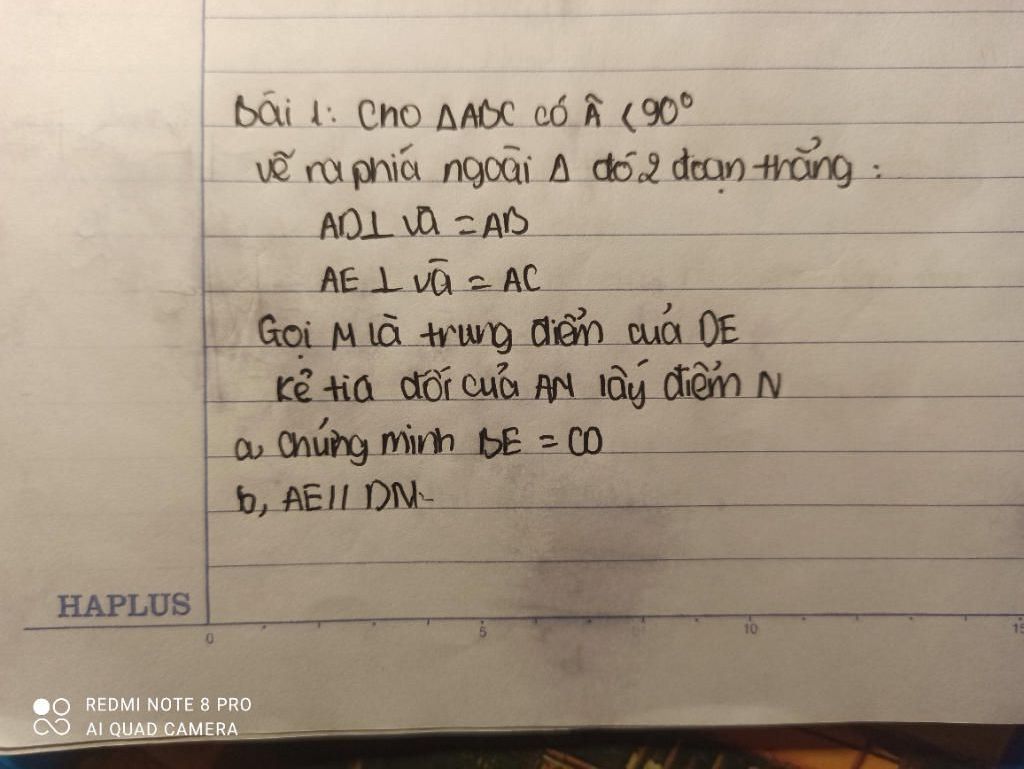 Bài 1: Cho ΔABC có Â < 90°
vẽ ra phiá ngoài Δ đó 2 đoạn thẳng :
AD⊥ và = AB
AE ⊥ và = AC
Gọi M là trung điểm của DE
kẻ tia đối của AM lấy điểm N
a, Chứng minh BE = CD
b, AE // DN.
HAPLUS
0 5 10 15
REDMI NOTE 8 PRO
AI QUAD CAMERA